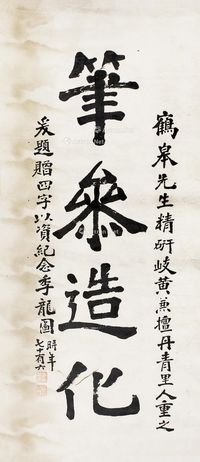 鶴皋先生精研岐黄兼擅丹青里人重之
筆參造化
爰題贈四字以資紀念季龍圖
時年
七十有六